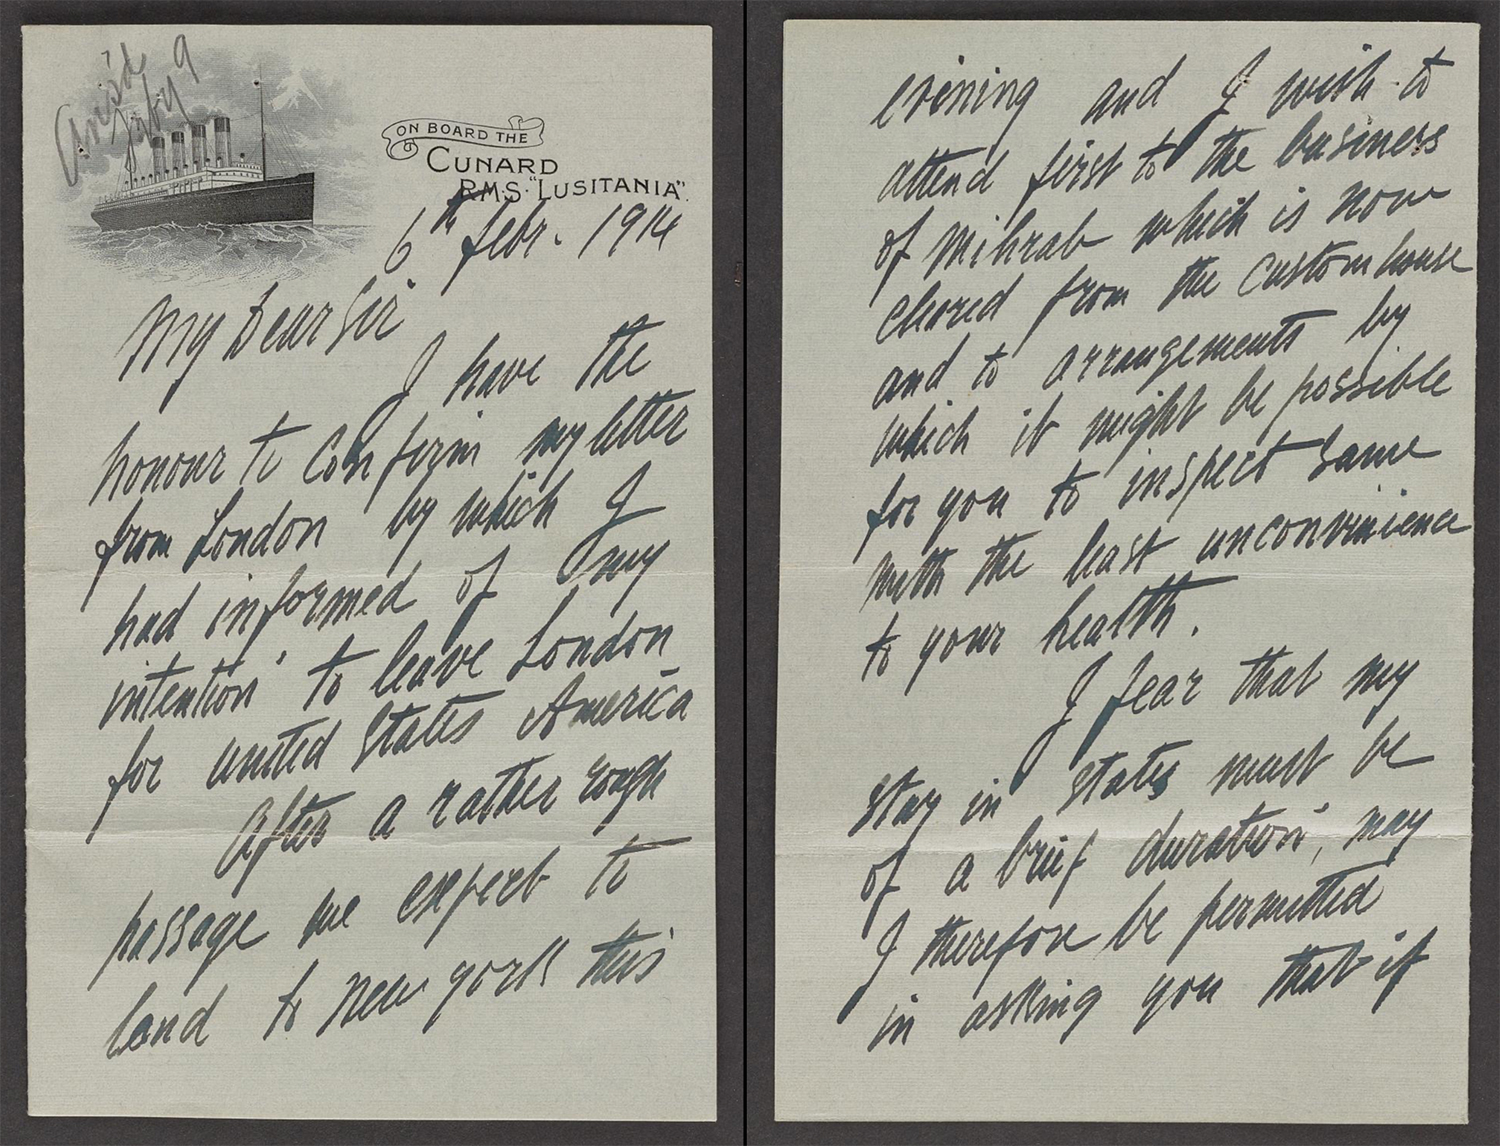 Ans'd
Feby 9
ON BOARD THE
CUNARD
R.M.S. "LUSITANIA".
6th febr. 1914
My Dear Sir
I have the
honour to Confirm my letter
from London by which I
had informed of my
intention to leave London
for united States America
After a rather rough
passage we expect to
land to New york this
evening and I wish to
attend first to the business
of Mihrab which is now
cleared from the Custom house
and to arrangements by
which it might be possible
for you to inspect same
with the least unconvinience
to your health.
I fear that my
stay in States must be
of a brief duration, may
I therefore be permitted
in asking you that if